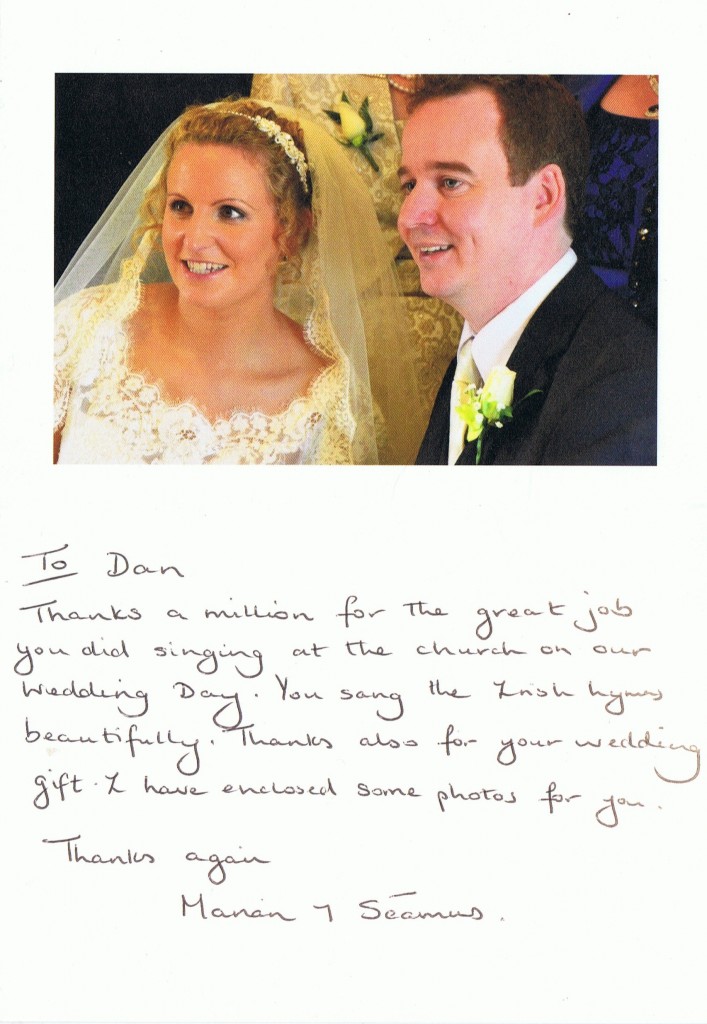 To Dan
Thanks a million for the great job
you did singing at the church on our
Wedding Day. You sang the Irish hymns
beautifully. Thanks also for your wedding
gift. I have enclosed some photos for you.
Thanks again
Marian ⁊ Séamus.